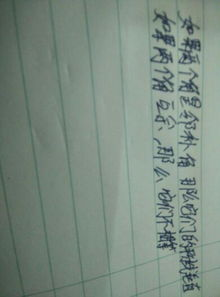 如果两个角是邻补角,那么它们的平分线垂直
如果两个角互余,那么它们不相等